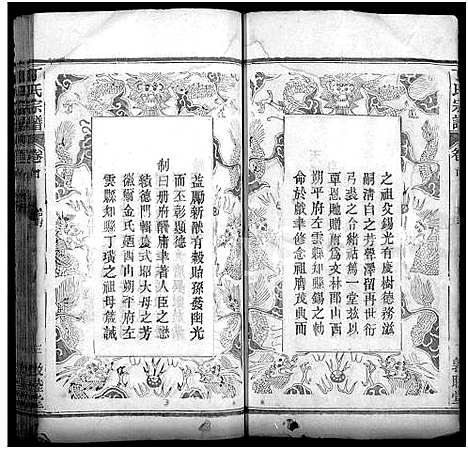 丁氏宗譜
卷首
之祖父錫光有慶樹德務滋
嗣清白之芳聲澤留再世衍
弓裘之令緒祜篤一堂茲以
覃恩貤贈爾爲文林郎山西
朔平府左雲縣知縣錫之勅
命於戲聿修念祖膺茂典而
益勵新猷有穀貽孫發幽光
而丕彰題德
制曰册府酬庸聿著人臣之懋
績德門輯慶式昭大母之芳
徽爾金氏廼西山朔平府左
雲縣知縣丁璞之祖母箴誡
敦睦堂